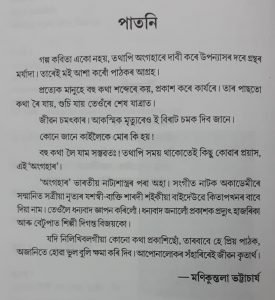 পাতনি
গল্প কবিতা একো নহয়, তথাপি অংগহাৰে দাবী কৰে উপন্যাসৰ দৰে গ্ৰন্থৰ
মৰ্যাদা। তাৰেই মই আশা কৰোঁ পাঠকৰ আগ্ৰহ।
প্ৰত্যেক মানুহে বহু কথা শব্দেৰে কয়, প্ৰকাশ কৰে কাৰ্যৰে। তাৰ পাছতো
কথা ৰৈ যায়, গুচি যায় তেওঁৰে শেষ যাত্ৰাত।
জীৱন চমৎকাৰ। আকস্মিক মৃত্যুৱেও ই বিৰাট চমক দিব জানে।
কোনে জানে কাইলৈকে মোৰ কি হয়!
বহু কথা লৈ যাম সম্ভৱতঃ। তথাপি সময় থাকোতেই কিছু কোৱাৰ প্ৰয়াস,
এই 'অংগহাৰ'।
'অংগহাৰ' ভাৰতীয় নাট্যশাস্ত্ৰৰ পৰা অহা। সংগীত নাটক অকাডেমীৰে
সন্মানিত সত্ৰীয়া নৃত্যৰ যশস্বী-ব্যক্তি শাৰদী শইকীয়া বাইদেউৱে কিতাপখনৰ বাবে
দিয়া নাম। তেওঁলৈ ধন্যবাদ জ্ঞাপন কৰিলোঁ। ধন্যবাদ জনালোঁ প্ৰকাশক প্ৰদ্যুৎ হাজৰিকা
আৰু বেটুপাত শিল্পী দিগন্ত বিজয়কো।
যদি নিলিখিবলগীয়া কোনো কথা প্ৰকাশিছোঁ, তাৰবাবে হে প্ৰিয় পাঠক,
অজানিতে হোৱা ভুল বুলি ক্ষমা কৰি দিব। আপোনালোকৰ সঁহাৰিৰেই জীৱন কৃতাৰ্থ।
— মণিকুন্তলা ভট্টাচাৰ্য